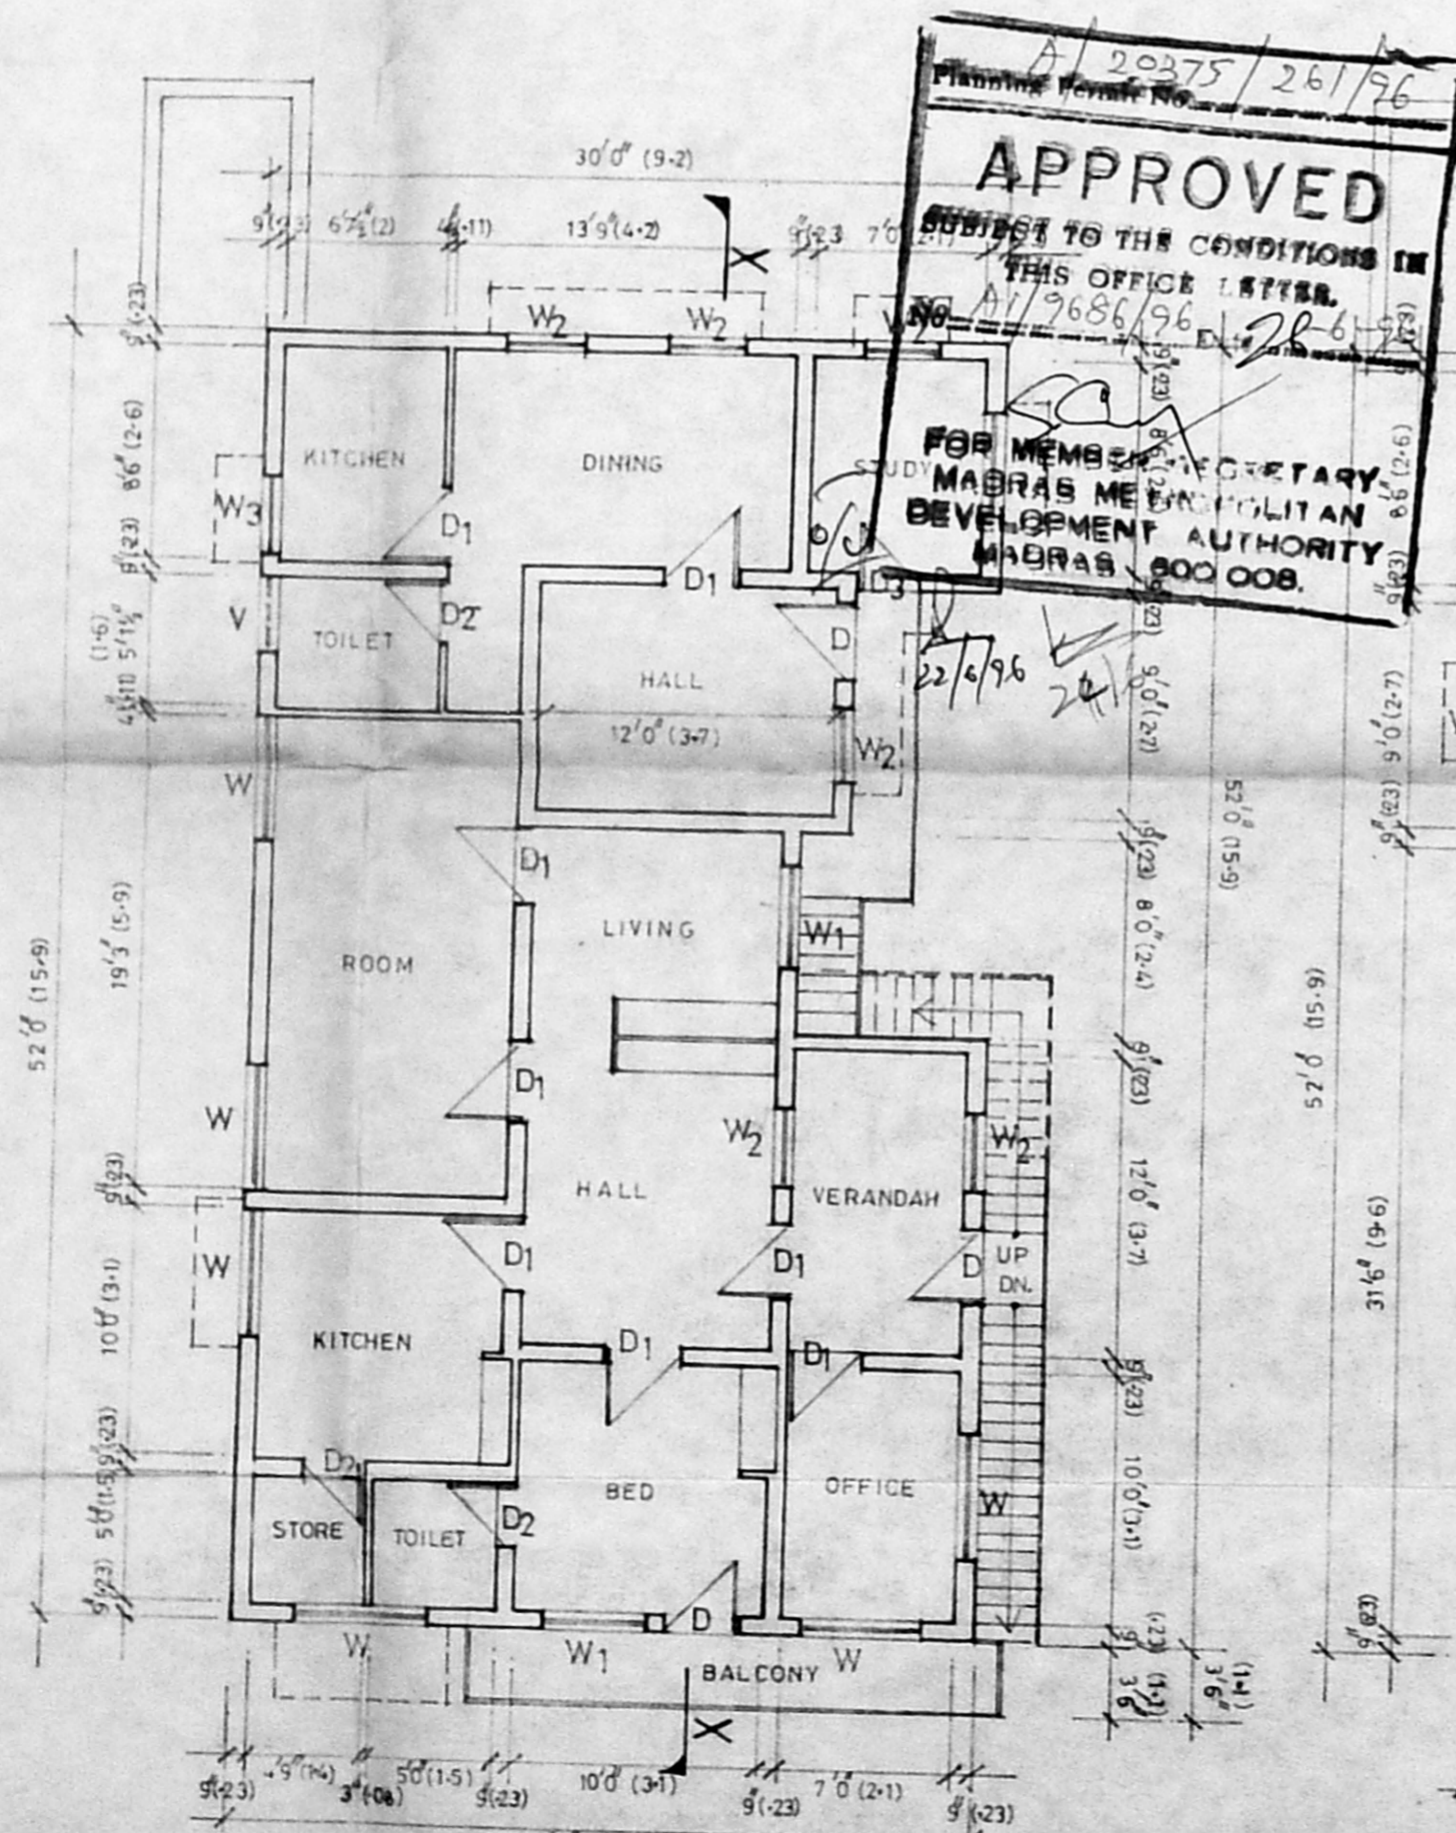 A/20375/261/96
Planning Permit No.
APPROVED
SUBJECT TO THE CONDITIONS IN
THIS OFFICE LETTER.
No A1/9686/96
FOR MEMBER SECRETARY
MADRAS METROPOLITAN
DEVELOPMENT AUTHORITY
MADRAS 600 008.
22/6/96
30'0" (9.2)
9"(.23) 6'7½"(2) 4½"(.11) 13'9"(4.2) 9"(.23 7'0"(2.1)
X
W2 W2
KITCHEN DINING STUDY
W3 D1
D1 D3
V TOILET D2 D
HALL
12'0" (3.7)
W W2
D1
LIVING
W1
ROOM
D1
W W2 W2
HALL VERANDAH
W D1 D1 D UP
DN.
KITCHEN D1 D1
D2 BED OFFICE
STORE TOILET D2 W
D
W W1 BALCONY W
X
9"(.23) 4'9"(1.4) 3"(.08) 5'0"(1.5) 9"(.23) 10'0" (3.1) 9"(.23) 7'0"(2.1) 9"(.23)
9"(.23)
8'6" (2.6)
9"(.23)
(1.6)
5'1½"
19'3" (5.9)
52'0" (15.9)
9"(.23)
10'0"(3.1)
9"(.23)
5'0"(1.5)
9"(.23)
9"(.23)
9'0"(2.7)
9"(.23)
8'0"(2.4)
9"(.23)
12'0" (3.7)
9"(.23)
10'0"(3.1)
9"(.23)
3'6" (1.1)
52'0" (15.9)
3'6" (1.1)
52'0" (15.9)
8'6"(2.6)
9"(.23)
9'0"(2.7)
9"(.23)
31'6" (9.6)
9"(.23)